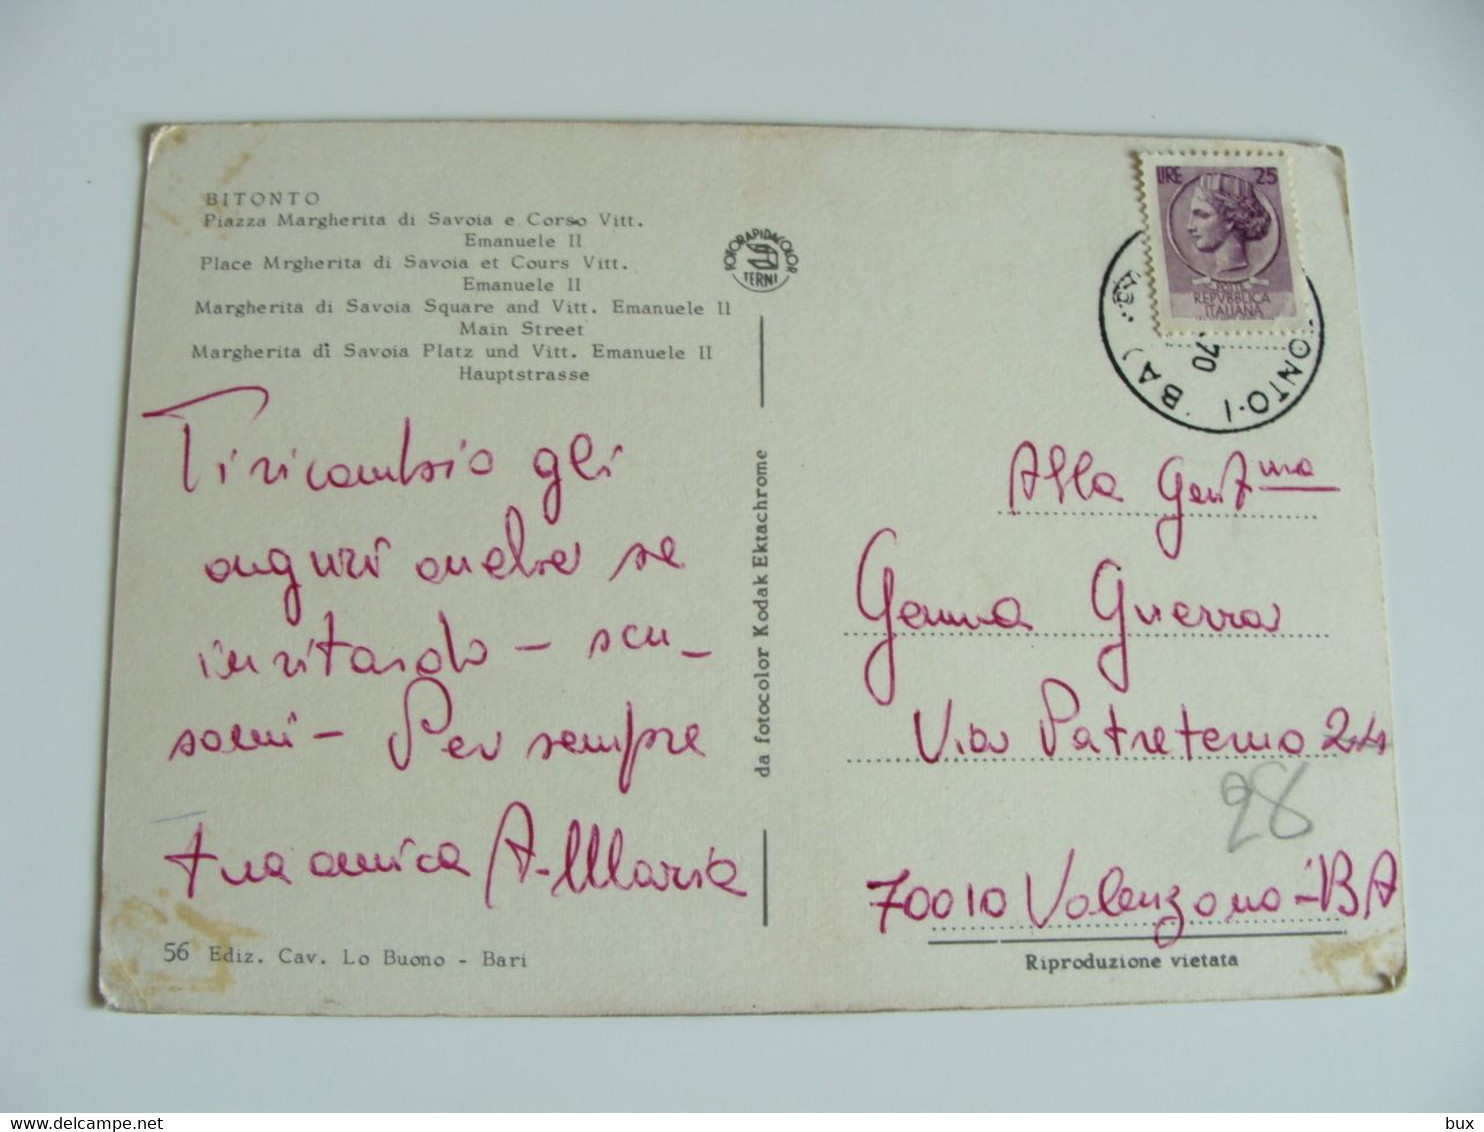 BITONTO
Piazza Margherita di Savoia e Corso Vitt.
Emanuele II
Place Mrgherita di Savoia et Cours Vitt.
Emanuele II
Margherita di Savoia Square and Vitt. Emanuele II
Main Street
Margherita di Savoia Platz und Vitt. Emanuele II
Hauptstrasse
Ti ricambio gli
auguri anche se
in ritardo - scu-
sami - Per sempre
tua amica A. Maria
56 Ediz. Cav. Lo Buono - Bari
FOTORAPIDACOLOR
TERNI
da fotocolor Kodak Ektachrome
LIRE 25
POSTE
REPVBBLICA
ITALIANA
ONTO·1 (BA)
70
Alla Gent.ma
Gemma Guerra
Via Patreterno
28
70010 Valenzano - BA
Riproduzione vietata
bux